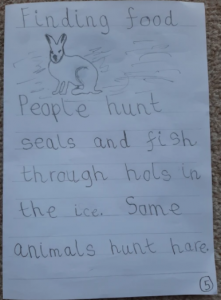 Finding food
People hunt
seals and fish
through hols in
the ice. Some
animals hunt hare.
5